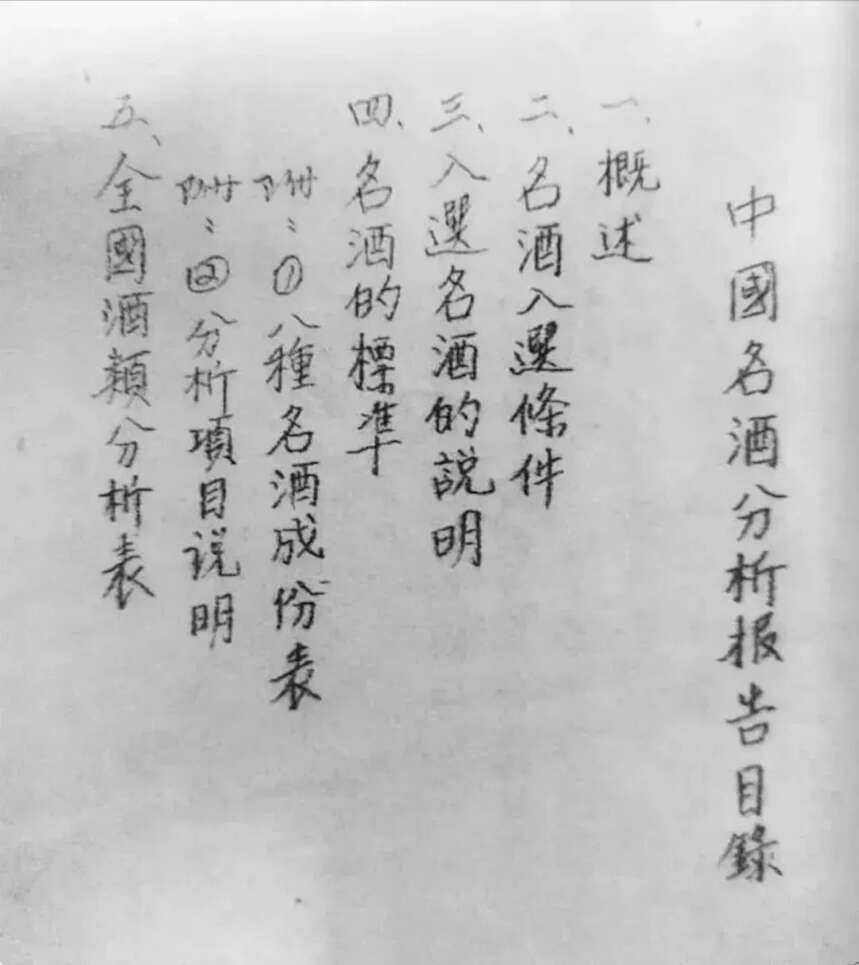 中國名酒分析报告目錄
一、概述
二、名酒入選條件
三、入選名酒的説明
四、名酒的標準
附：①八種名酒成份表
附：②分析項目説明
五、全國酒類分析表